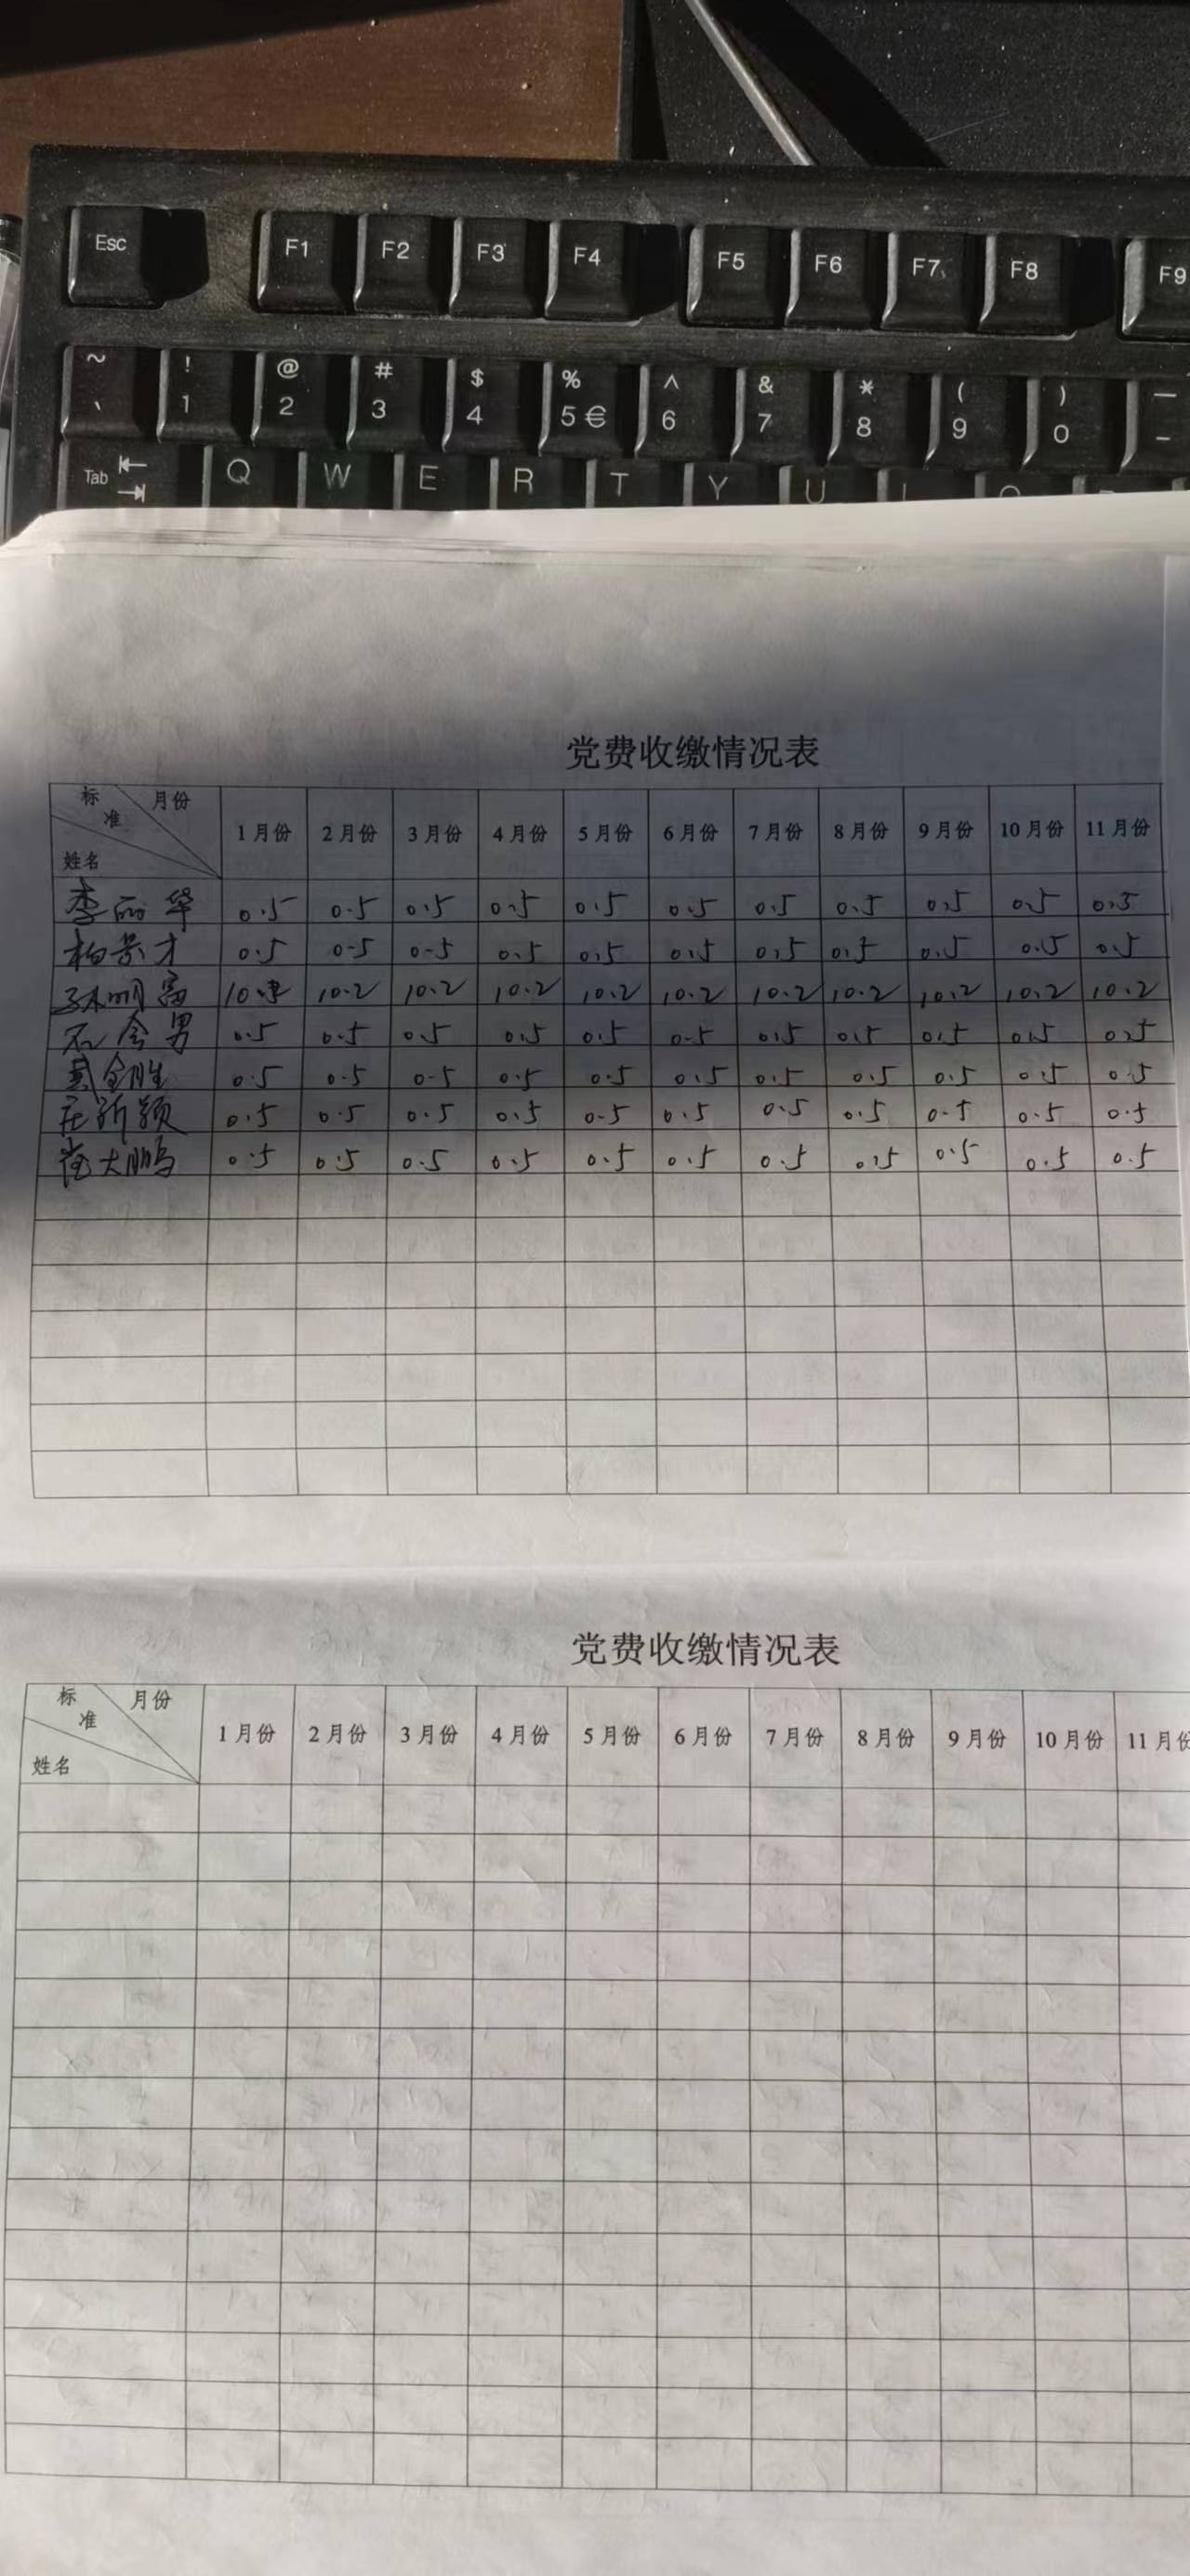 Esc F1 F2 F3 F4 F5 F6 F7 F8 F9
~ ! @ # $ % ^ & * ( ) —
、 1 2 3 4 5 € 6 7 8 9 0 -
Tab Q W E R T Y U
党费收缴情况表
标准 月份 姓名 1月份 2月份 3月份 4月份 5月份 6月份 7月份 8月份 9月份 10月份 11月份
李丽华 0.5 0.5 0.5 0.5 0.5 0.5 0.5 0.5 0.5 0.5 0.5
柏景才 0.5 0.5 0.5 0.5 0.5 0.5 0.5 0.5 0.5 0.5 0.5
孙明富 10.2 10.2 10.2 10.2 10.2 10.2 10.2 10.2 10.2 10.2
石金男 0.5 0.5 0.5 0.5 0.5 0.5 0.5 0.5 0.5 0.5 0.5
金胜 0.5 0.5 0.5 0.5 0.5 0.5 0.5 0.5 0.5 0.5 0.5
颖 0.5 0.5 0.5 0.5 0.5 0.5 0.5 0.5 0.5 0.5 0.5
大鹏 0.5 0.5 0.5 0.5 0.5 0.5 0.5 0.5 0.5 0.5 0.5
党费收缴情况表
标准 月份 姓名 1月份 2月份 3月份 4月份 5月份 6月份 7月份 8月份 9月份 10月份 11月份